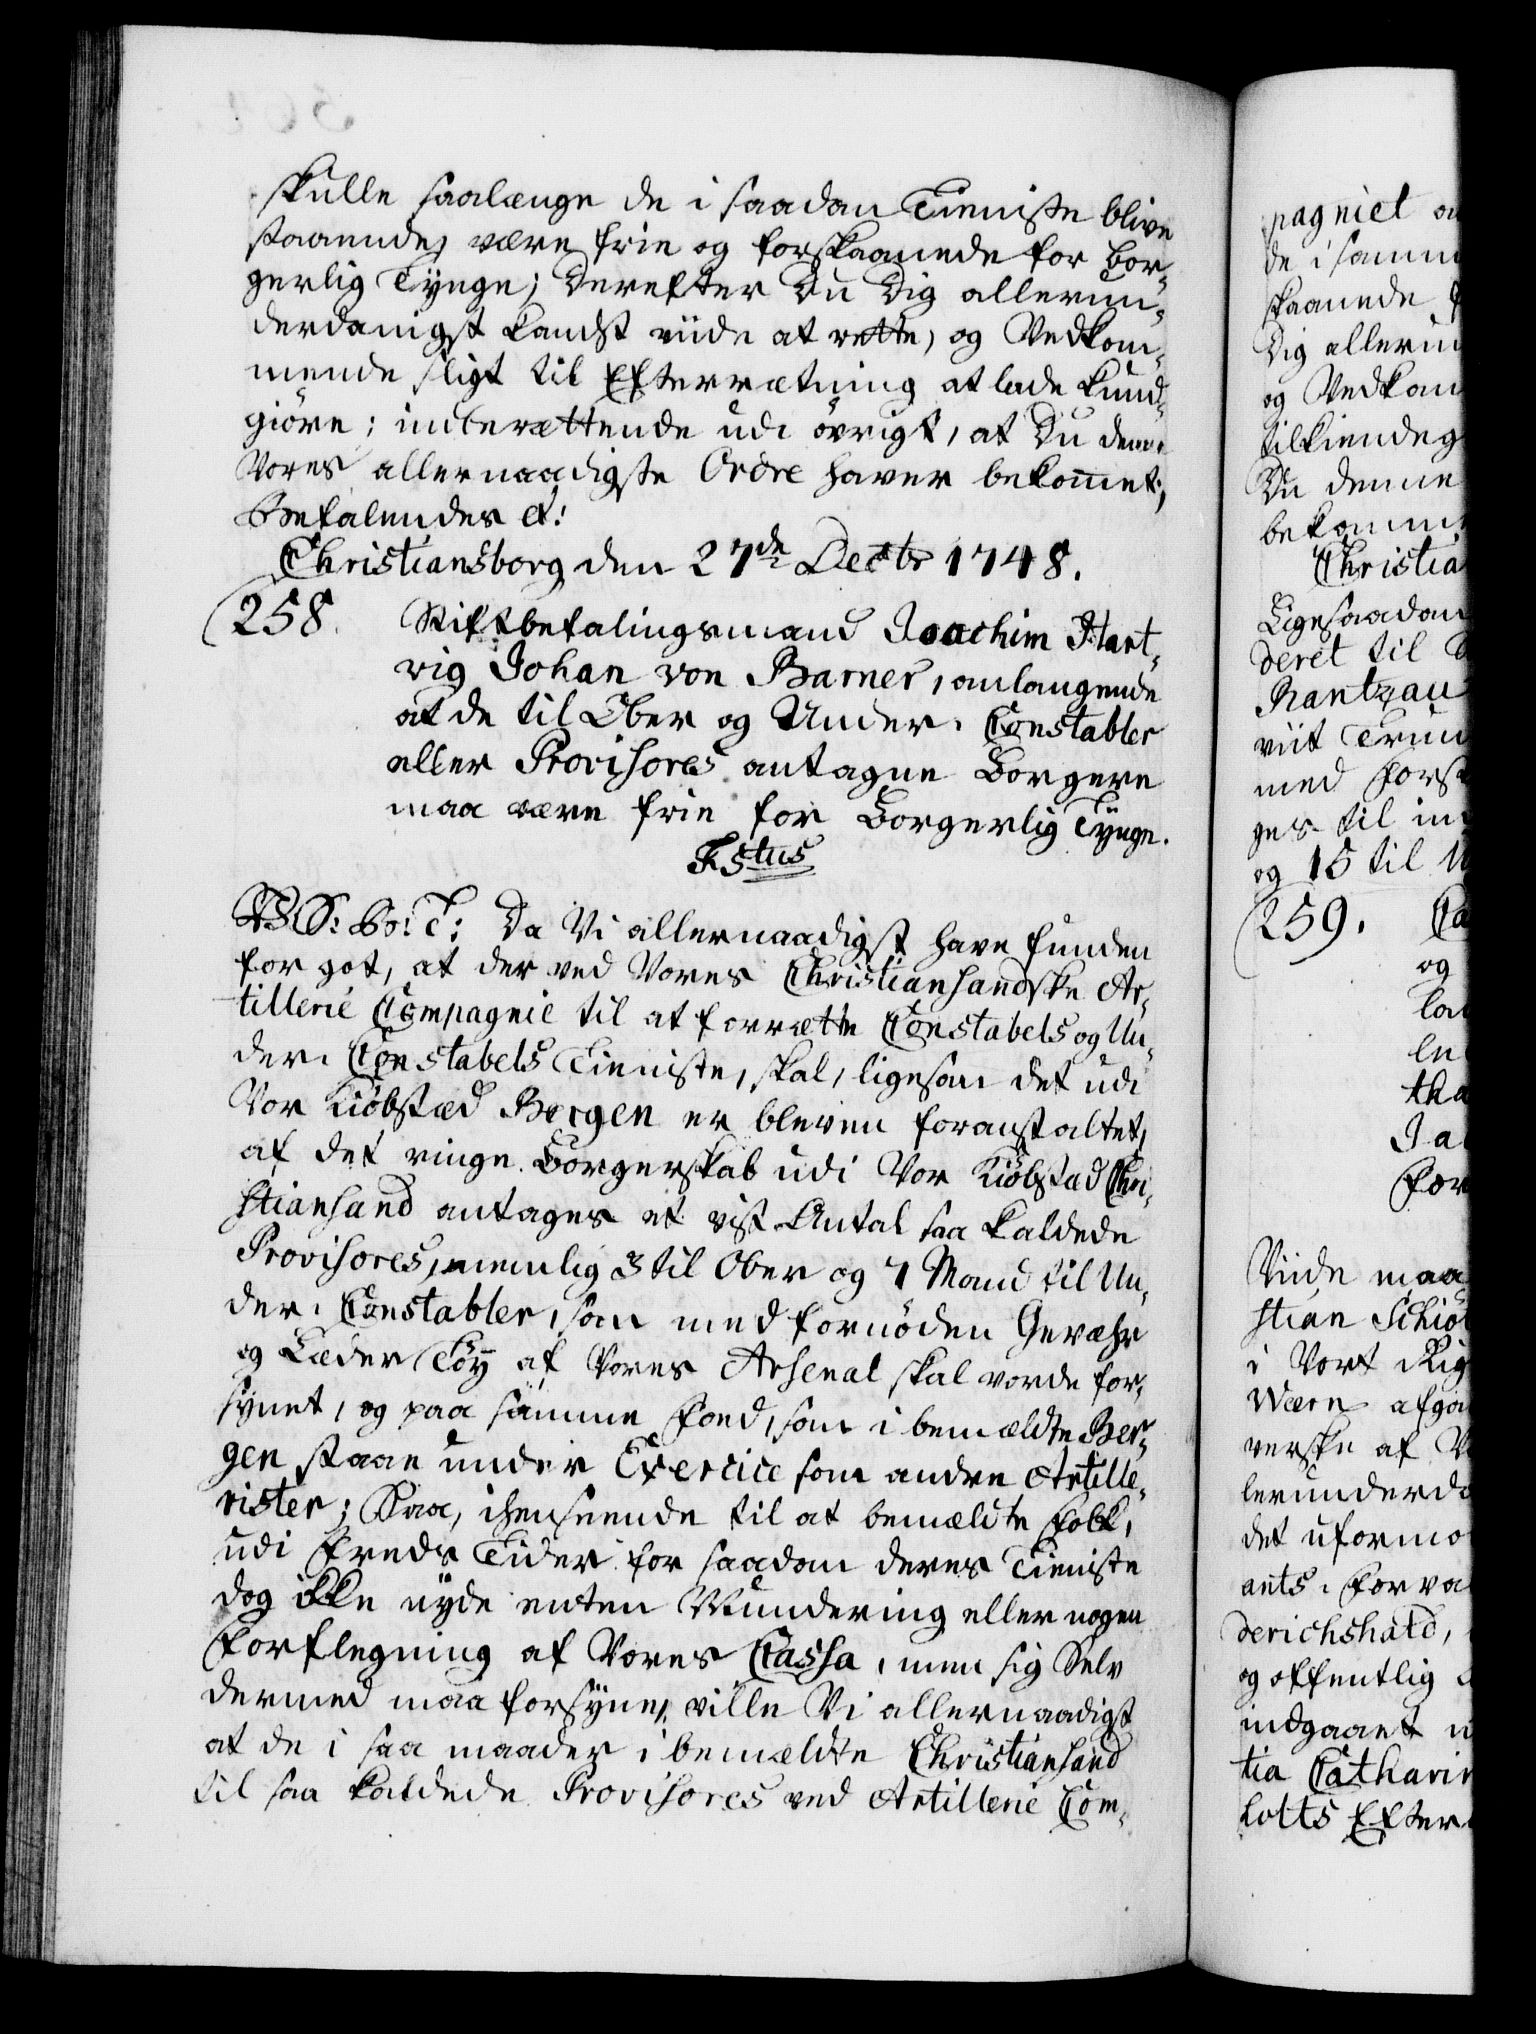 skulle saalænge de i saadan Tieniste blive
staaende, være frie og forskaanede for bor-
gerlig Tynge; Derefter Du Dig allerun-
derdanigst kandst viide at rette, og Vedkom-
mende sligt til Efterrætning at lade kund-
giöre; inberættende udi övrigt, at Du denne
Vores allernaadigste Ordre haver bekommet;
Befalendes et:
Christiansborg den 27de Decbr 1748.
258. Stiftbefalingsmand Joachim Hart-
vig Johan von Barner, anlangende
at de til Ober og Under-Constabler
eller Provisores antagne Borgere
maa være frie for Borgerlig Tynge.
F5tus
V S: Bo: T: Da Vi allernaadigst have funden
for got, at der ved Vores Christiansandske Ar-
tillerie Compagnie til at forrætte Constabels og Un-
der-Constabels Tieniste, skal, ligesom det udi
Vor Kiöbstæd Bergen er bleven foranstaltet,
af det ringe Borgerskab udi Vor Kiöbstad Chri-
stiansand antages et vist Antal saa kaldede
Provisores, nemlig 3 til Ober og 7 Mand til Un-
der-Constabler, som med fornöden Gevæhr
og Læder Töy af Vores Arsenal skal vorde for-
synet, og paa samme Foed, som i bemældte Ber-
gen staae under Exercice som andre Artille-
rister; Saa, i henseende til at bemældte Folk,
udi Freds Tider for saadan deres Tieniste
dog ikke nyde enten Mundering eller nogen
Forflegning af Vores Cassa, men sig Selv
dermed maa forsyne, ville Vi allernaadigst
at de i saa maader i bemældte Christiansand
til saa kaldede Provisores ved Artillerie Com-
pagniet
de i samm
skaanede
Dig allerun
og Vedkom
tilkiendeg
Du denne
bekomme
Christia
Ligesaadan
deret til
Rantzau
viit Trun
med Forsk
ges til
og 15 til
259.
og
Viide maa
stian Schiöt
i Vort Rig
Wærn afga
verske af
lerunderda
det uformo
ants-Forva
derichshald,
og offentlig
indgaaet
tia Catharin
lotts Efter